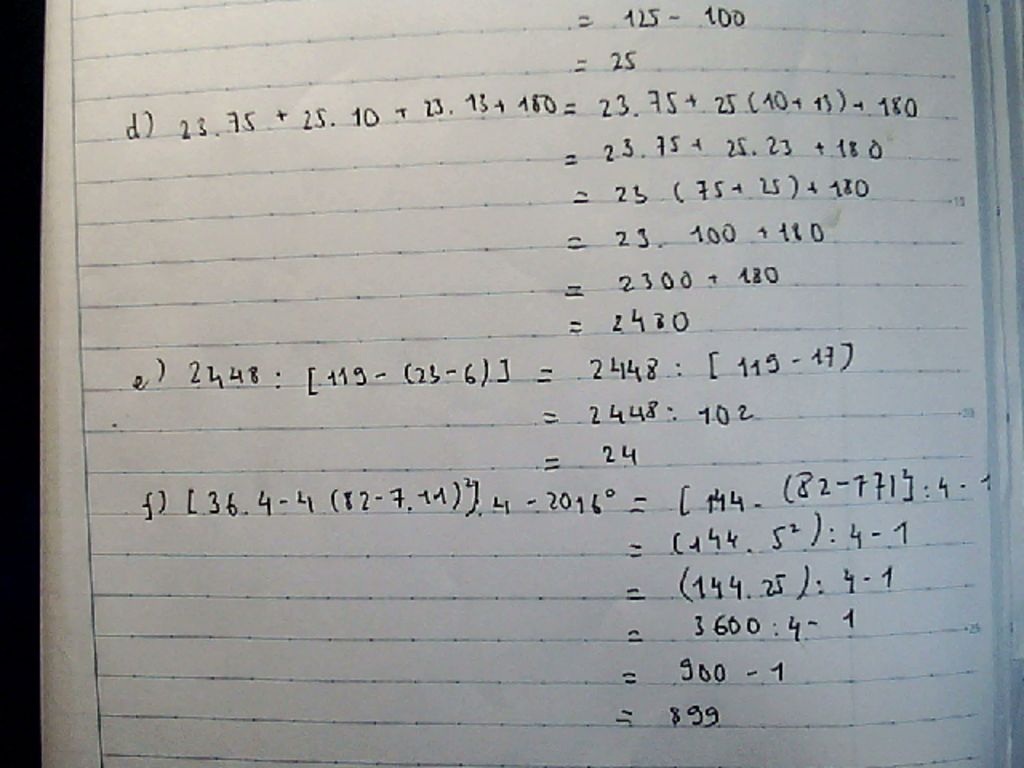 = 125 - 100
= 25
d) 23.75 + 25.10 + 23.13 + 180 = 23.75 + 25(10+13) + 180
= 23.75 + 25.23 + 180
= 23 (75 + 25) + 180
= 23. 100 + 180
= 2300 + 180
= 2480
e) 2448 : [119 - (23-6)] = 2448 : [119 - 17)
= 2448 : 102
= 24
f) [36.4 - 4 (82-7.11)²]. 4 - 2016° = [144. (82-77)²]: 4 - 1
= (144. 5²) : 4 - 1
= (144.25) : 4 - 1
= 3600 : 4 - 1
= 900 - 1
= 899